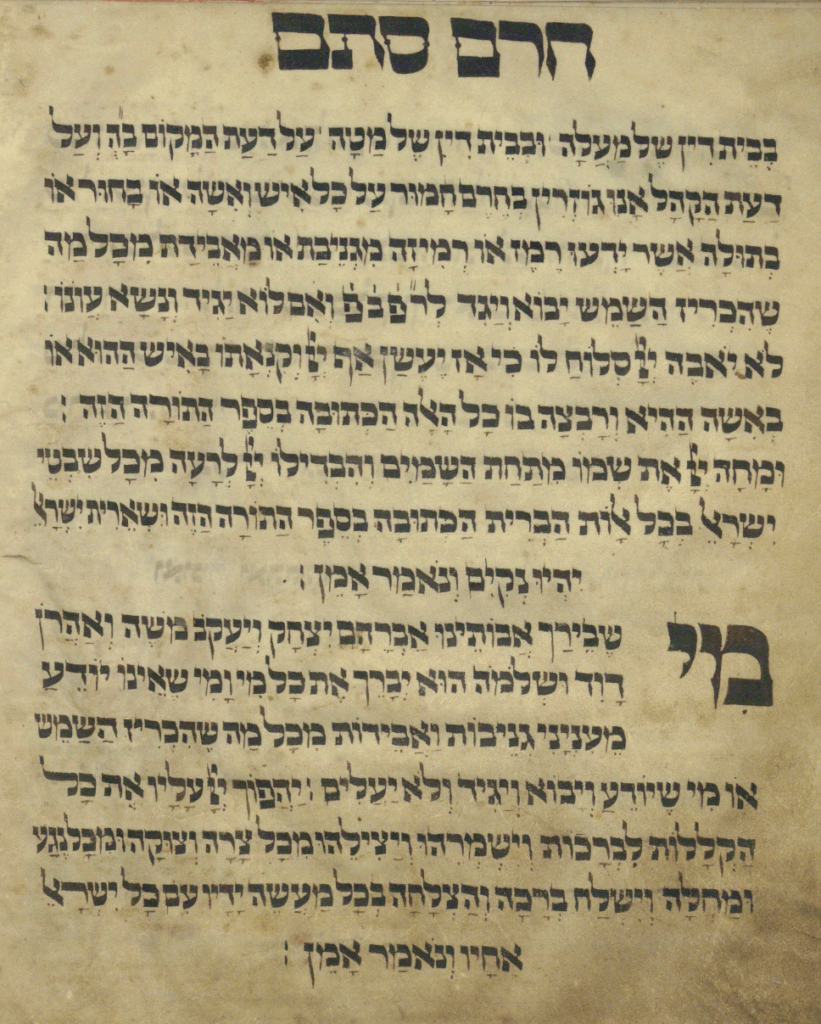 חרם סתם
בבית דין של מעלה ובבית דין של מטה על דעת המקום ב״ה ועל
דעת הקהל אנו גוזרין בחרם חמור על כל איש ואשה או בחור או
בתולה אשר ידעו רמז או רמיזה מגניבת או מאבידת מכל מה
שהכריז השמש יבוא ויגד לר״פ ב״פ ואם לוא יגיד ונשא עונו :
לא יאבה ייָ סלוח לו כי אז יעשן אף ייָ וקנאתו באיש ההוא או
באשה ההיא ורבצה בו כל האלה הכתובה בספר התורה הזה :
ומחה ייָ את שמו מתחת השמים והבדילו ייָ לרעה מכל שבטי
ישראל בכל אלות הברית הכתובה בספר התורה הזה ושארית ישראל
יהיו נקים ונאמר אמן :
מי שבירך אבותינו אברהם יצחק ויעקב משה ואהרן
דוד ושלמה הוא יברך את כל מי ומי שאינו יודע
מעניני גניבות ואבידות מכל מה שהכריז השמש
או מי שיודע ויבוא ויגיד ולא יעלים : יהפוך ייָ עליו את כל
הקללות לברכות וישמרהו ויצילהו מכל צרה וצוקה ומכל נגע
ומחלה וישלח ברכה והצלחה בכל מעשה ידיו עם כל ישראל
אחיו ונאמר אמן :